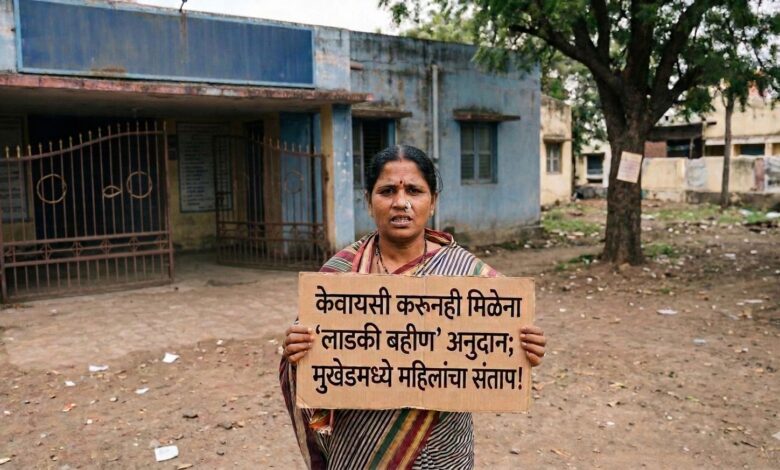 केवायसी करूनही मिळेना
'लाडकी बहीण' अनुदान;
मुखेडमध्ये महिलांचा संताप!